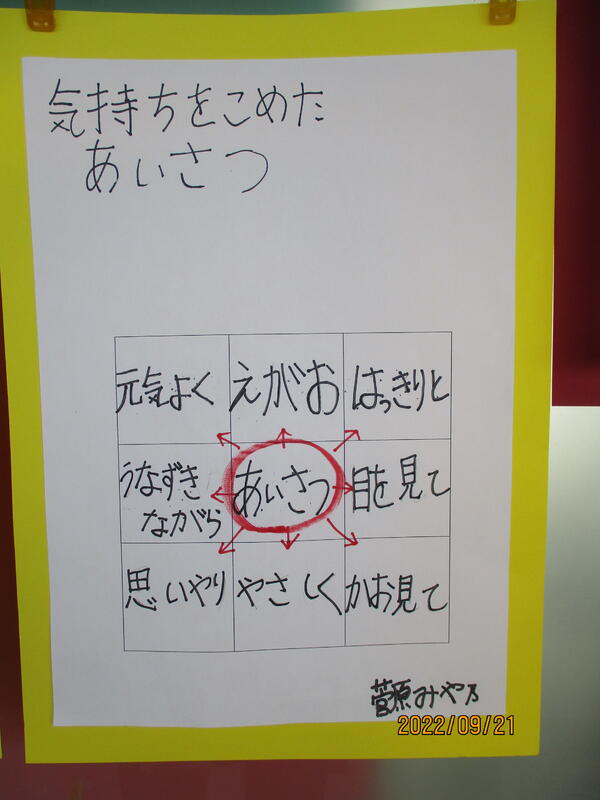 気持ちをこめた
あいさつ
元気よく えがお はっきりと
うなずき
ながら
あいさつ 目を見て
思いやり やさしく かお見て
菅原みや乃
2022/09/21